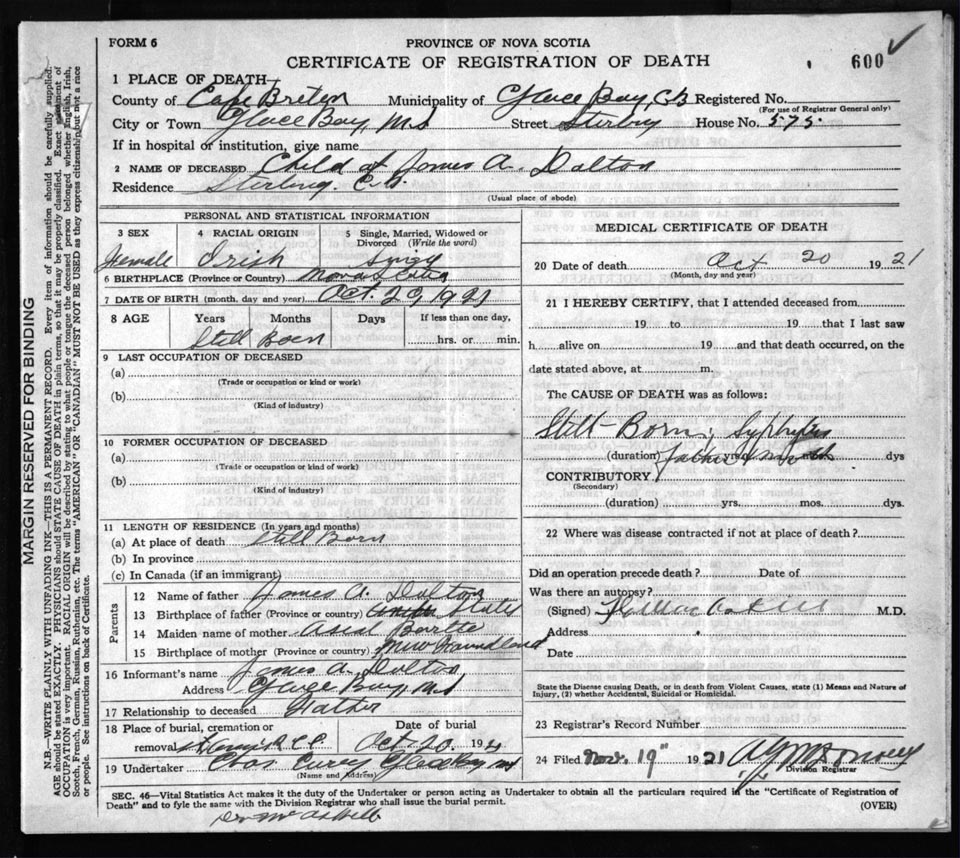 FORM 6
PROVINCE OF NOVA SCOTIA
CERTIFICATE OF REGISTRATION OF DEATH
600
1 PLACE OF DEATH
County of Cape Breton Municipality of Glace Bay, C.B Registered No.
(For use of Registrar General only)
City or Town Glace Bay, N.S Street House No. 575
If in hospital or institution, give name
2 NAME OF DECEASED Child of James A. Dalton
Residence Sterling. C.B.
(Usual place of abode)
PERSONAL AND STATISTICAL INFORMATION
3 SEX 4 RACIAL ORIGIN 5 Single, Married, Widowed or Divorced (Write the word)
Female Irish
6 BIRTHPLACE (Province or Country) Nova Scotia
7 DATE OF BIRTH (month, day and year) Oct. 20, 1921
8 AGE Years Months Days If less than one day,
Still Born hrs. or min.
9 LAST OCCUPATION OF DECEASED
(a)
(Trade or occupation or kind or work)
(b)
(Kind of industry)
10 FORMER OCCUPATION OF DECEASED
(a)
(Trade or occupation or kind of work)
(b)
(Kind of industry)
11 LENGTH OF RESIDENCE (In years and months)
(a) At place of death Still Born
(b) In province
(c) In Canada (if an immigrant)
Parents
12 Name of father James A. Dalton
13 Birthplace of father (Province or country) United States
14 Maiden name of mother
15 Birthplace of mother (Province or country) New Foundland
16 Informant's name James A. Dalton
Address Glace Bay, N.S
17 Relationship to deceased Father
18 Place of burial, cremation or removal Date of burial
Oct. 20. 1921
19 Undertaker Chas. Curry Glace Bay N.S
(Name and Address)
MEDICAL CERTIFICATE OF DEATH
20 Date of death Oct 20 1921
(Month, day and year)
21 I HEREBY CERTIFY, that I attended deceased from
19 to 19 that I last saw
h alive on 19 and that death occurred, on the
date stated above, at m.
The CAUSE OF DEATH was as follows:
Still-Born; Syphylis
(duration) father & mother yrs. mos. dys
CONTRIBUTORY
(Secondary)
(duration) yrs. mos. dys.
22 Where was disease contracted if not at place of death?
Did an operation precede death? Date of
Was there an autopsy?
(Signed) M.D.
Address
Date
State the Disease causing Death, or in death from Violent Causes, state (1) Means and Nature of
Injury, (2) whether Accidental, Suicidal or Homicidal.
23 Registrar's Record Number
24 Filed Nov. 19" 1921
Division Registrar
SEC. 46—Vital Statistics Act makes it the duty of the Undertaker or person acting as Undertaker to obtain all the particulars required in the "Certificate of Registration of
Death" and to fyle the same with the Division Registrar who shall issue the burial permit. (OVER)
MARGIN RESERVED FOR BINDING
N.B.—WRITE PLAINLY WITH UNFADING INK—THIS IS A PERMANENT RECORD. Every item of information should be carefully supplied.
AGE should be stated EXACTLY. PHYSICIANS should STATE CAUSE OF DEATH in plain terms, so that it may be properly classified. Exact statement of
OCCUPATION is very important. RACIAL ORIGIN will be described by stating to what people or tongue the deceased person belonged whether English, Irish,
Scotch, French, German, Russian, Ruthenian, etc. The terms "AMERICAN" OR "CANADIAN" MUST NOT BE USED as they express citizenship but not a race
or people. See instructions on back of Certificate.